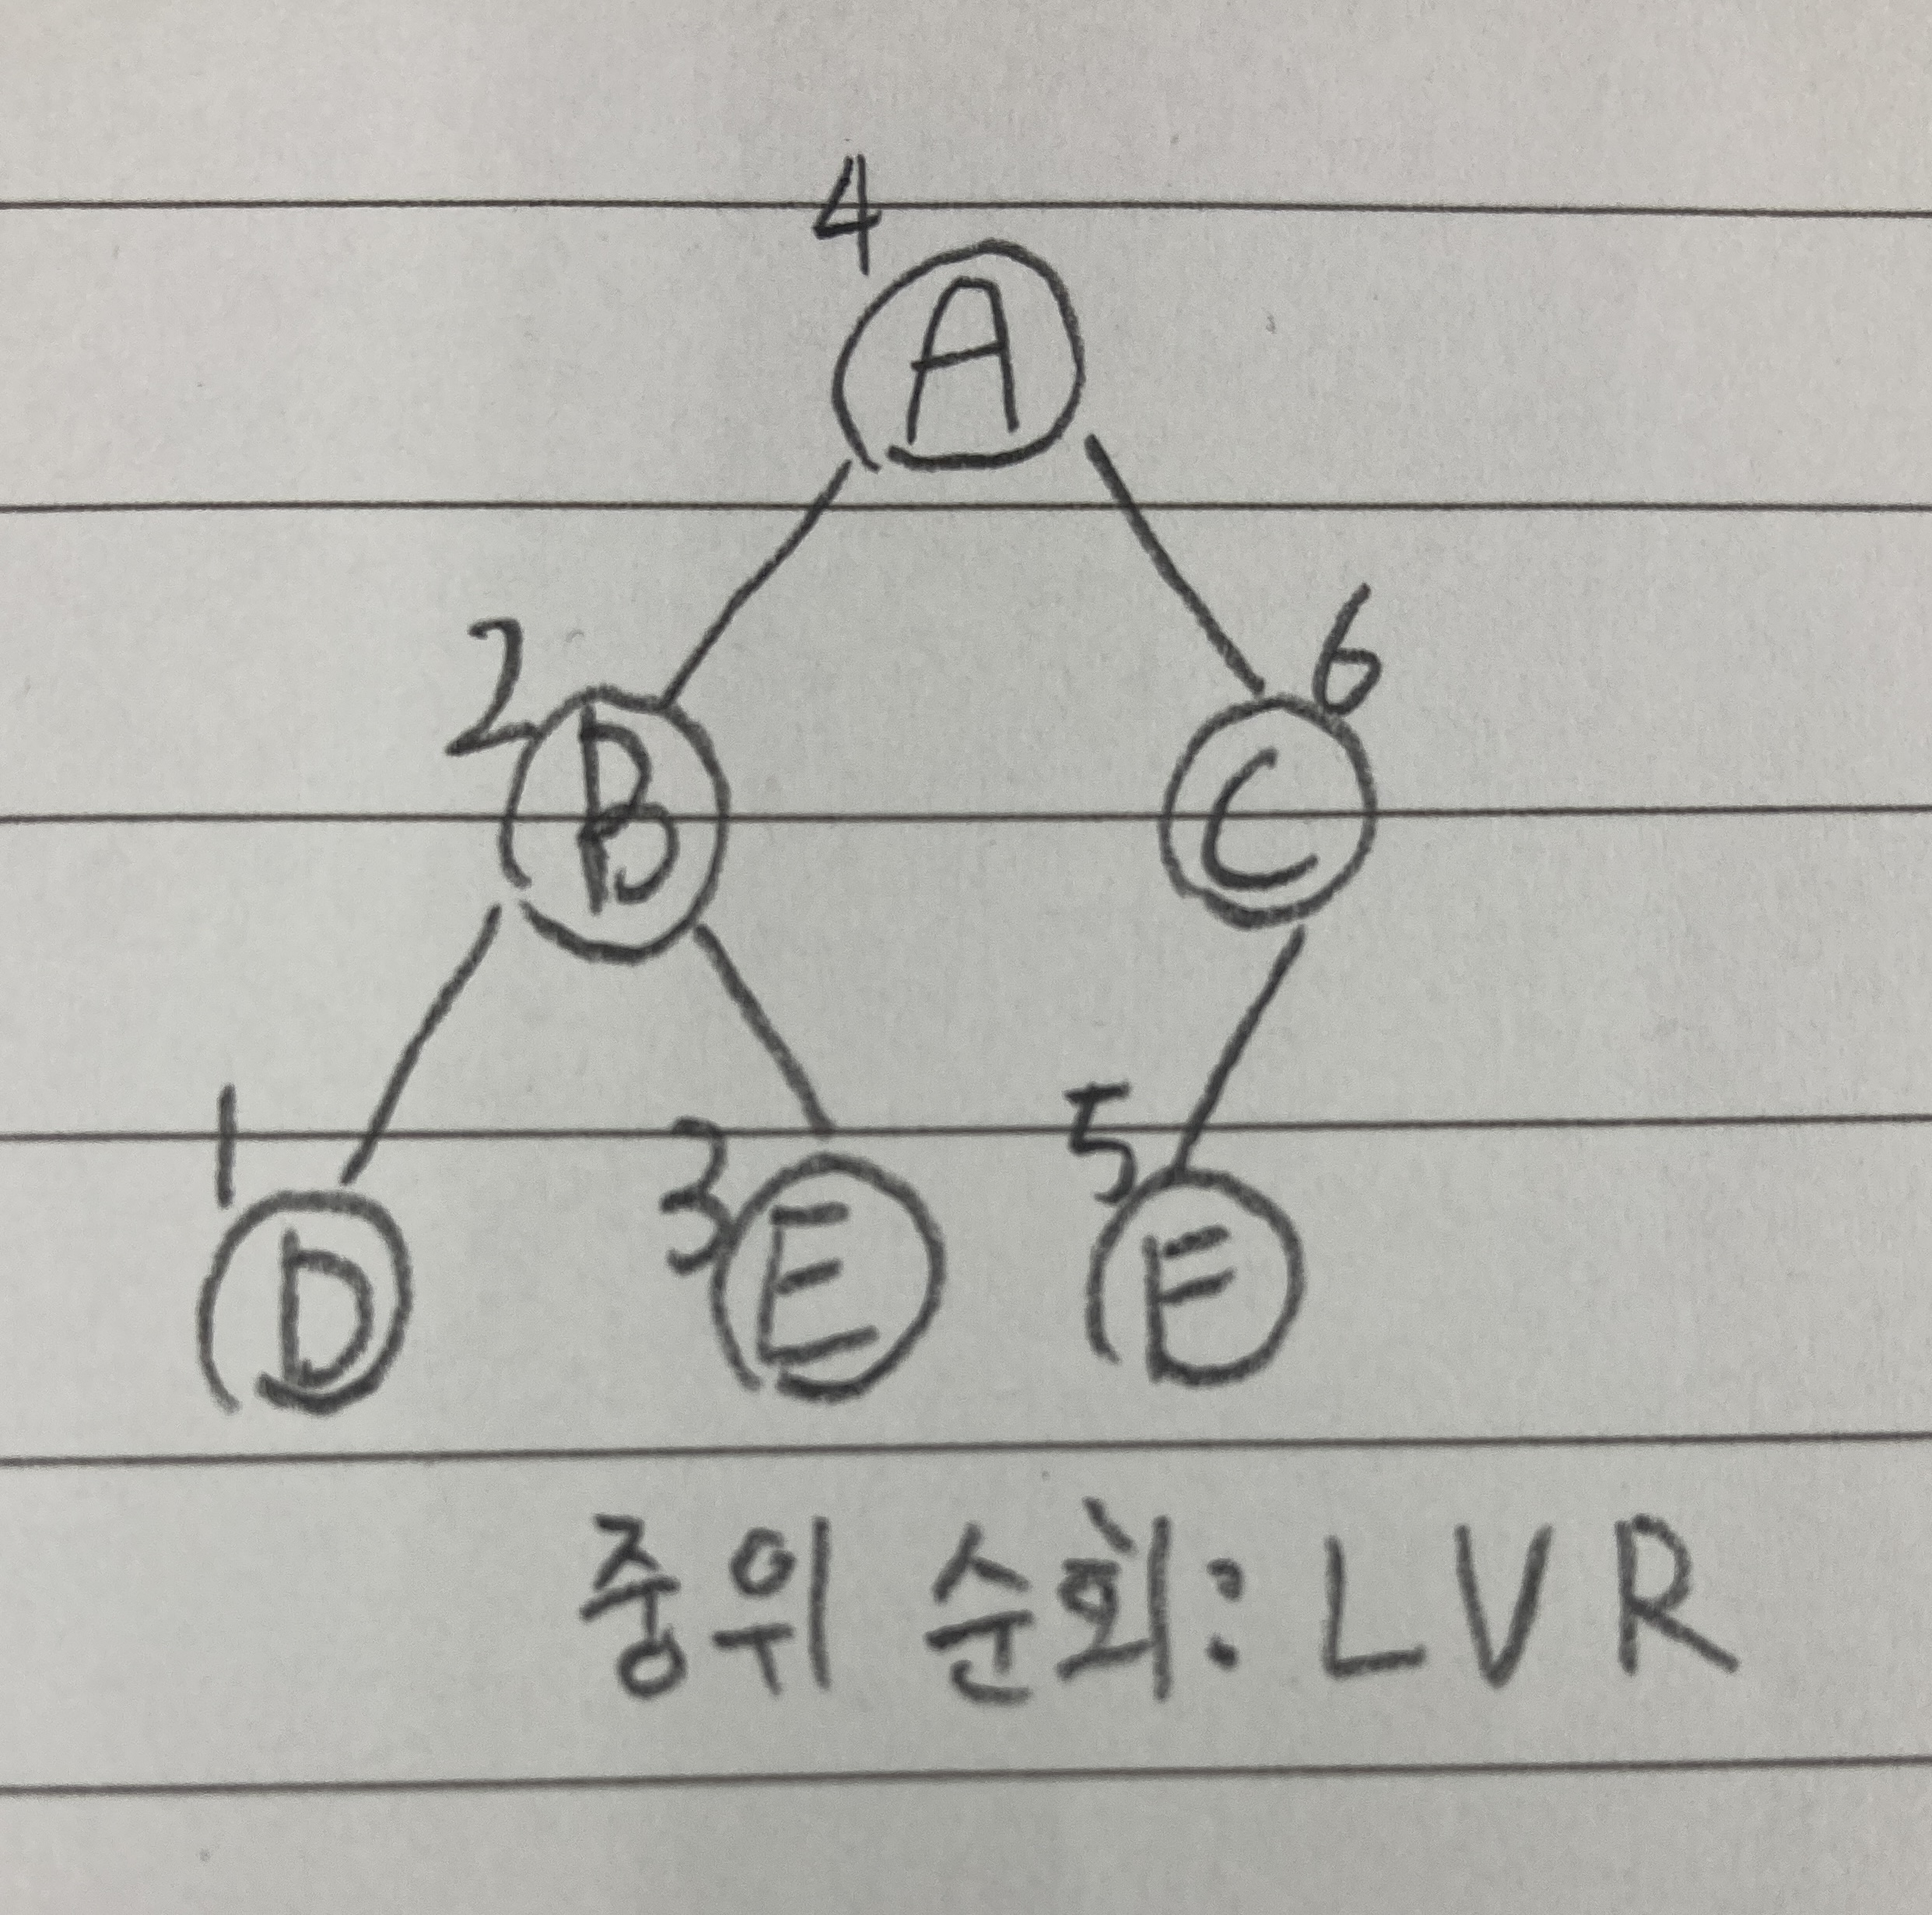 4
A
2 B
6
C
1
D
3 E
5
F
중위 순회: LVR